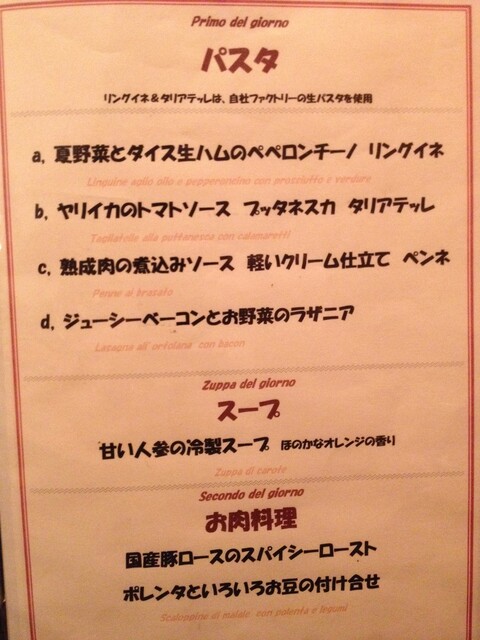 Primo del giorno
パスタ
リングイネ&タリアテッレは、自社ファクトリーの生パスタを使用
a, 夏野菜とダイス生ハムのペペロンチーノ リングイネ
Linguine aglio olio e peperoncino con prosciutto e verdure
b, ヤリイカのトマトソース プッタネスカ タリアテッレ
Tagliatelle alla puttanesca con calamaretti
c, 熟成肉の煮込みソース 軽いクリーム仕立て ペンネ
Penne al brasato
d, ジューシーベーコンとお野菜のラザニア
Lasagna all' ortolana con bacon
Zuppa del giorno
スープ
甘い人参の冷製スープ ほのかなオレンジの香り
Zuppa di carote
Secondo del giorno
お肉料理
国産豚ロースのスパイシーロースト
ポレンタといろいろお豆の付け合せ
Scaloppine di maiale con polenta e legumi